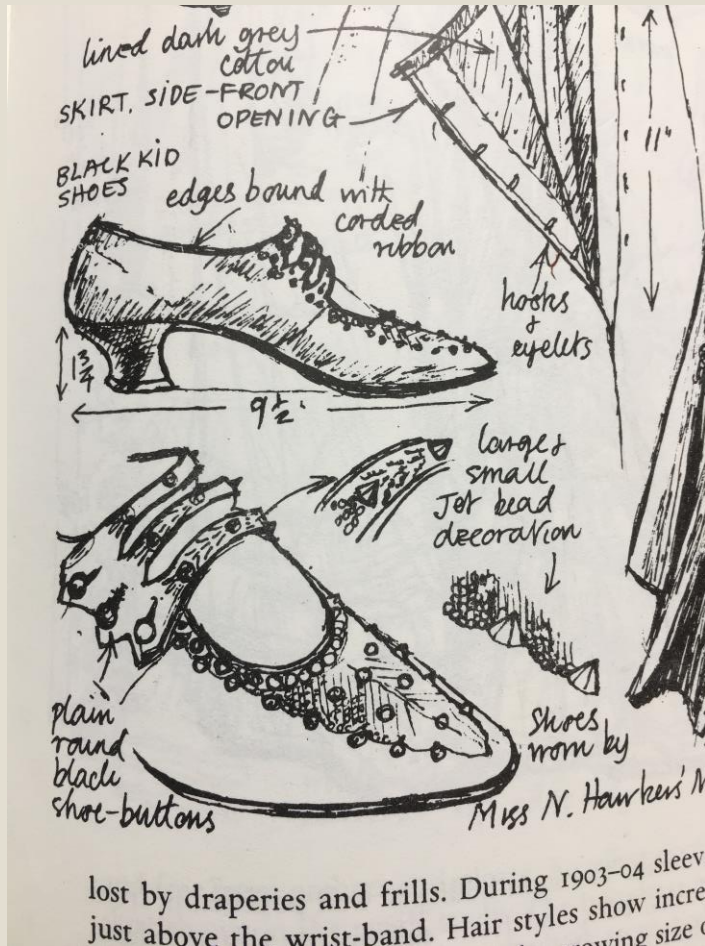 lined dark grey
cotton
SKIRT, SIDE-FRONT
OPENING
11"
BLACK KID
SHOES
edges bound with
corded
ribbon
hooks
&
eyelets
1 3/4
9 1/2"
large &
small
Jet bead
decoration
plain
round
black
shoe-buttons
Shoes
worn by
Miss N. Hawkers'
lost by draperies and frills. During 1903–04 sleev
just above the wrist-band. Hair styles show incre
rowing size o